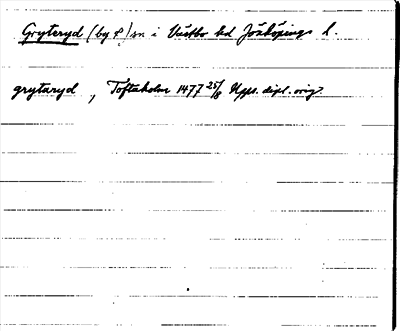 Gryteryd (by o.) sn i Västbo hd Jönköpings l.
grytaryd, Toftaholm 1477 25/8 Upps. dipl. orig.